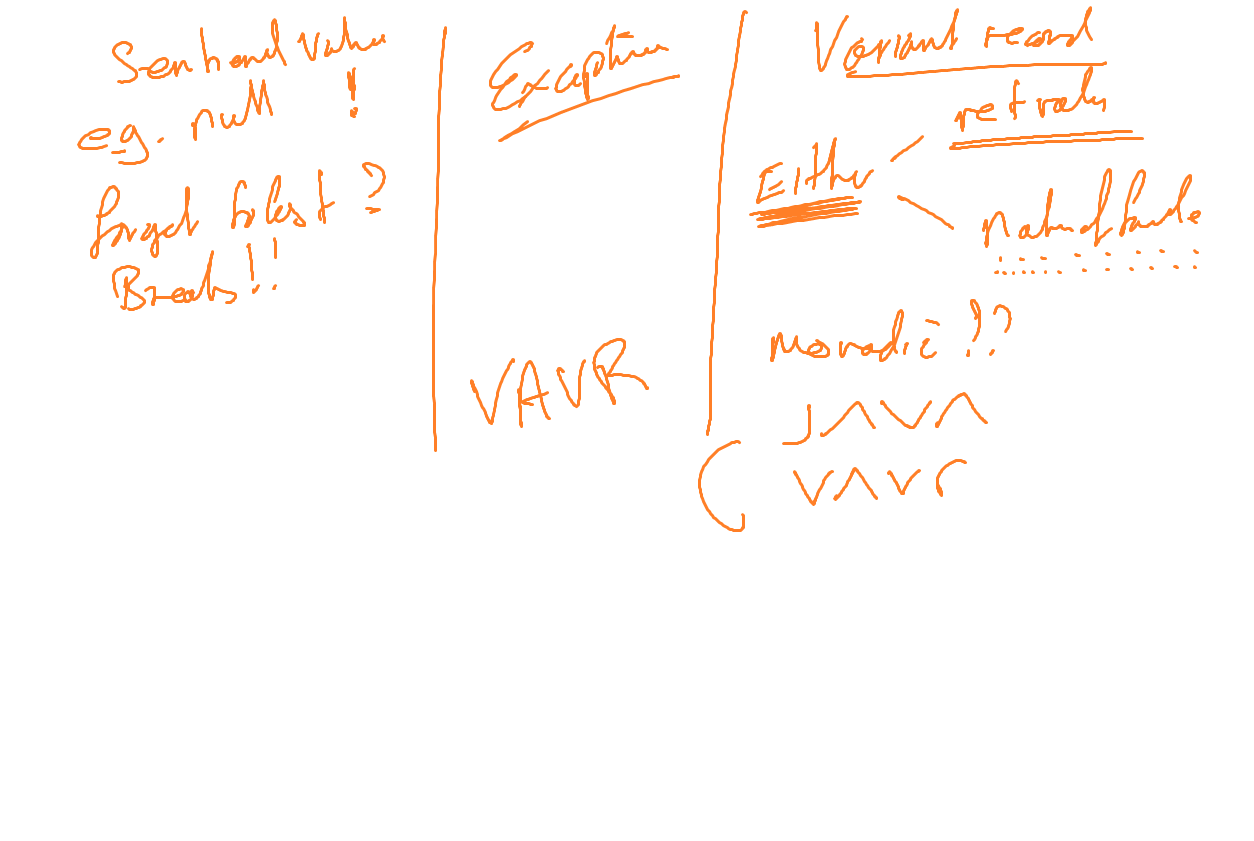 Sentinel Value
e.g. null !
forget to test ?
Breaks!!
Exception
VAVR
Variant record
ret value
Either
nature of failure
monadic !??
JAVA
VAVr